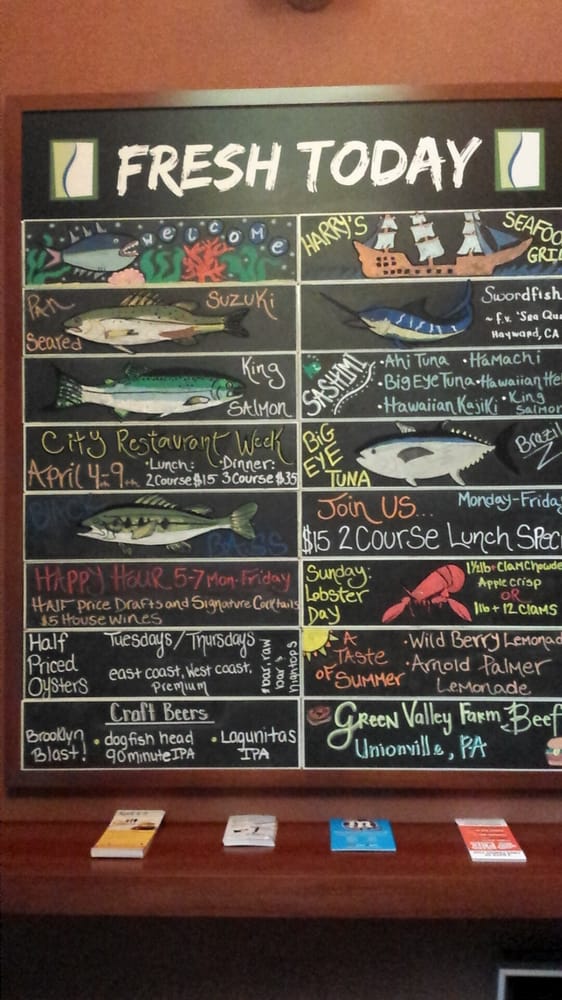 FRESH TODAY
welcome
HARRY'S
SEAFOO
GRI
Pan
Seared
Suzuki
Swordfish
~ f.v. "Sea Qu
Hayward, CA
King
Salmon
SASHIMI
• Ahi Tuna • Hamachi
• Big Eye Tuna • Hawaiian He
• Hawaiian Kajiki • King
Salmon
City Restaurant Week
April 4th-9th
• Lunch:
2 Course $15
• Dinner:
3 Course $35
BIG
EYE
TUNA
Brazil
BLACK
BASS
Join Us...
Monday-Friday
$15 2 Course Lunch Speci
HAPPY HOUR 5-7 Mon-Friday
Half Price Drafts and Signature Cocktails
$5 House Wines
Sunday:
Lobster
Day
1 1/2 lb + Clam Chowde
Apple crisp
OR
1 lb + 12 Clams
Half
Priced
Oysters
Tuesdays / Thursdays
east coast, West coast,
premium
*bar, raw
bar +
hightops
A
TASTE
OF SUMMER
• Wild Berry Lemonad
• Arnold Palmer
Lemonade
Craft Beers
Brooklyn
Blast!
• dogfish head
90 minute IPA
• Lagunitas
IPA
Green Valley Farm Beef
Unionville, PA